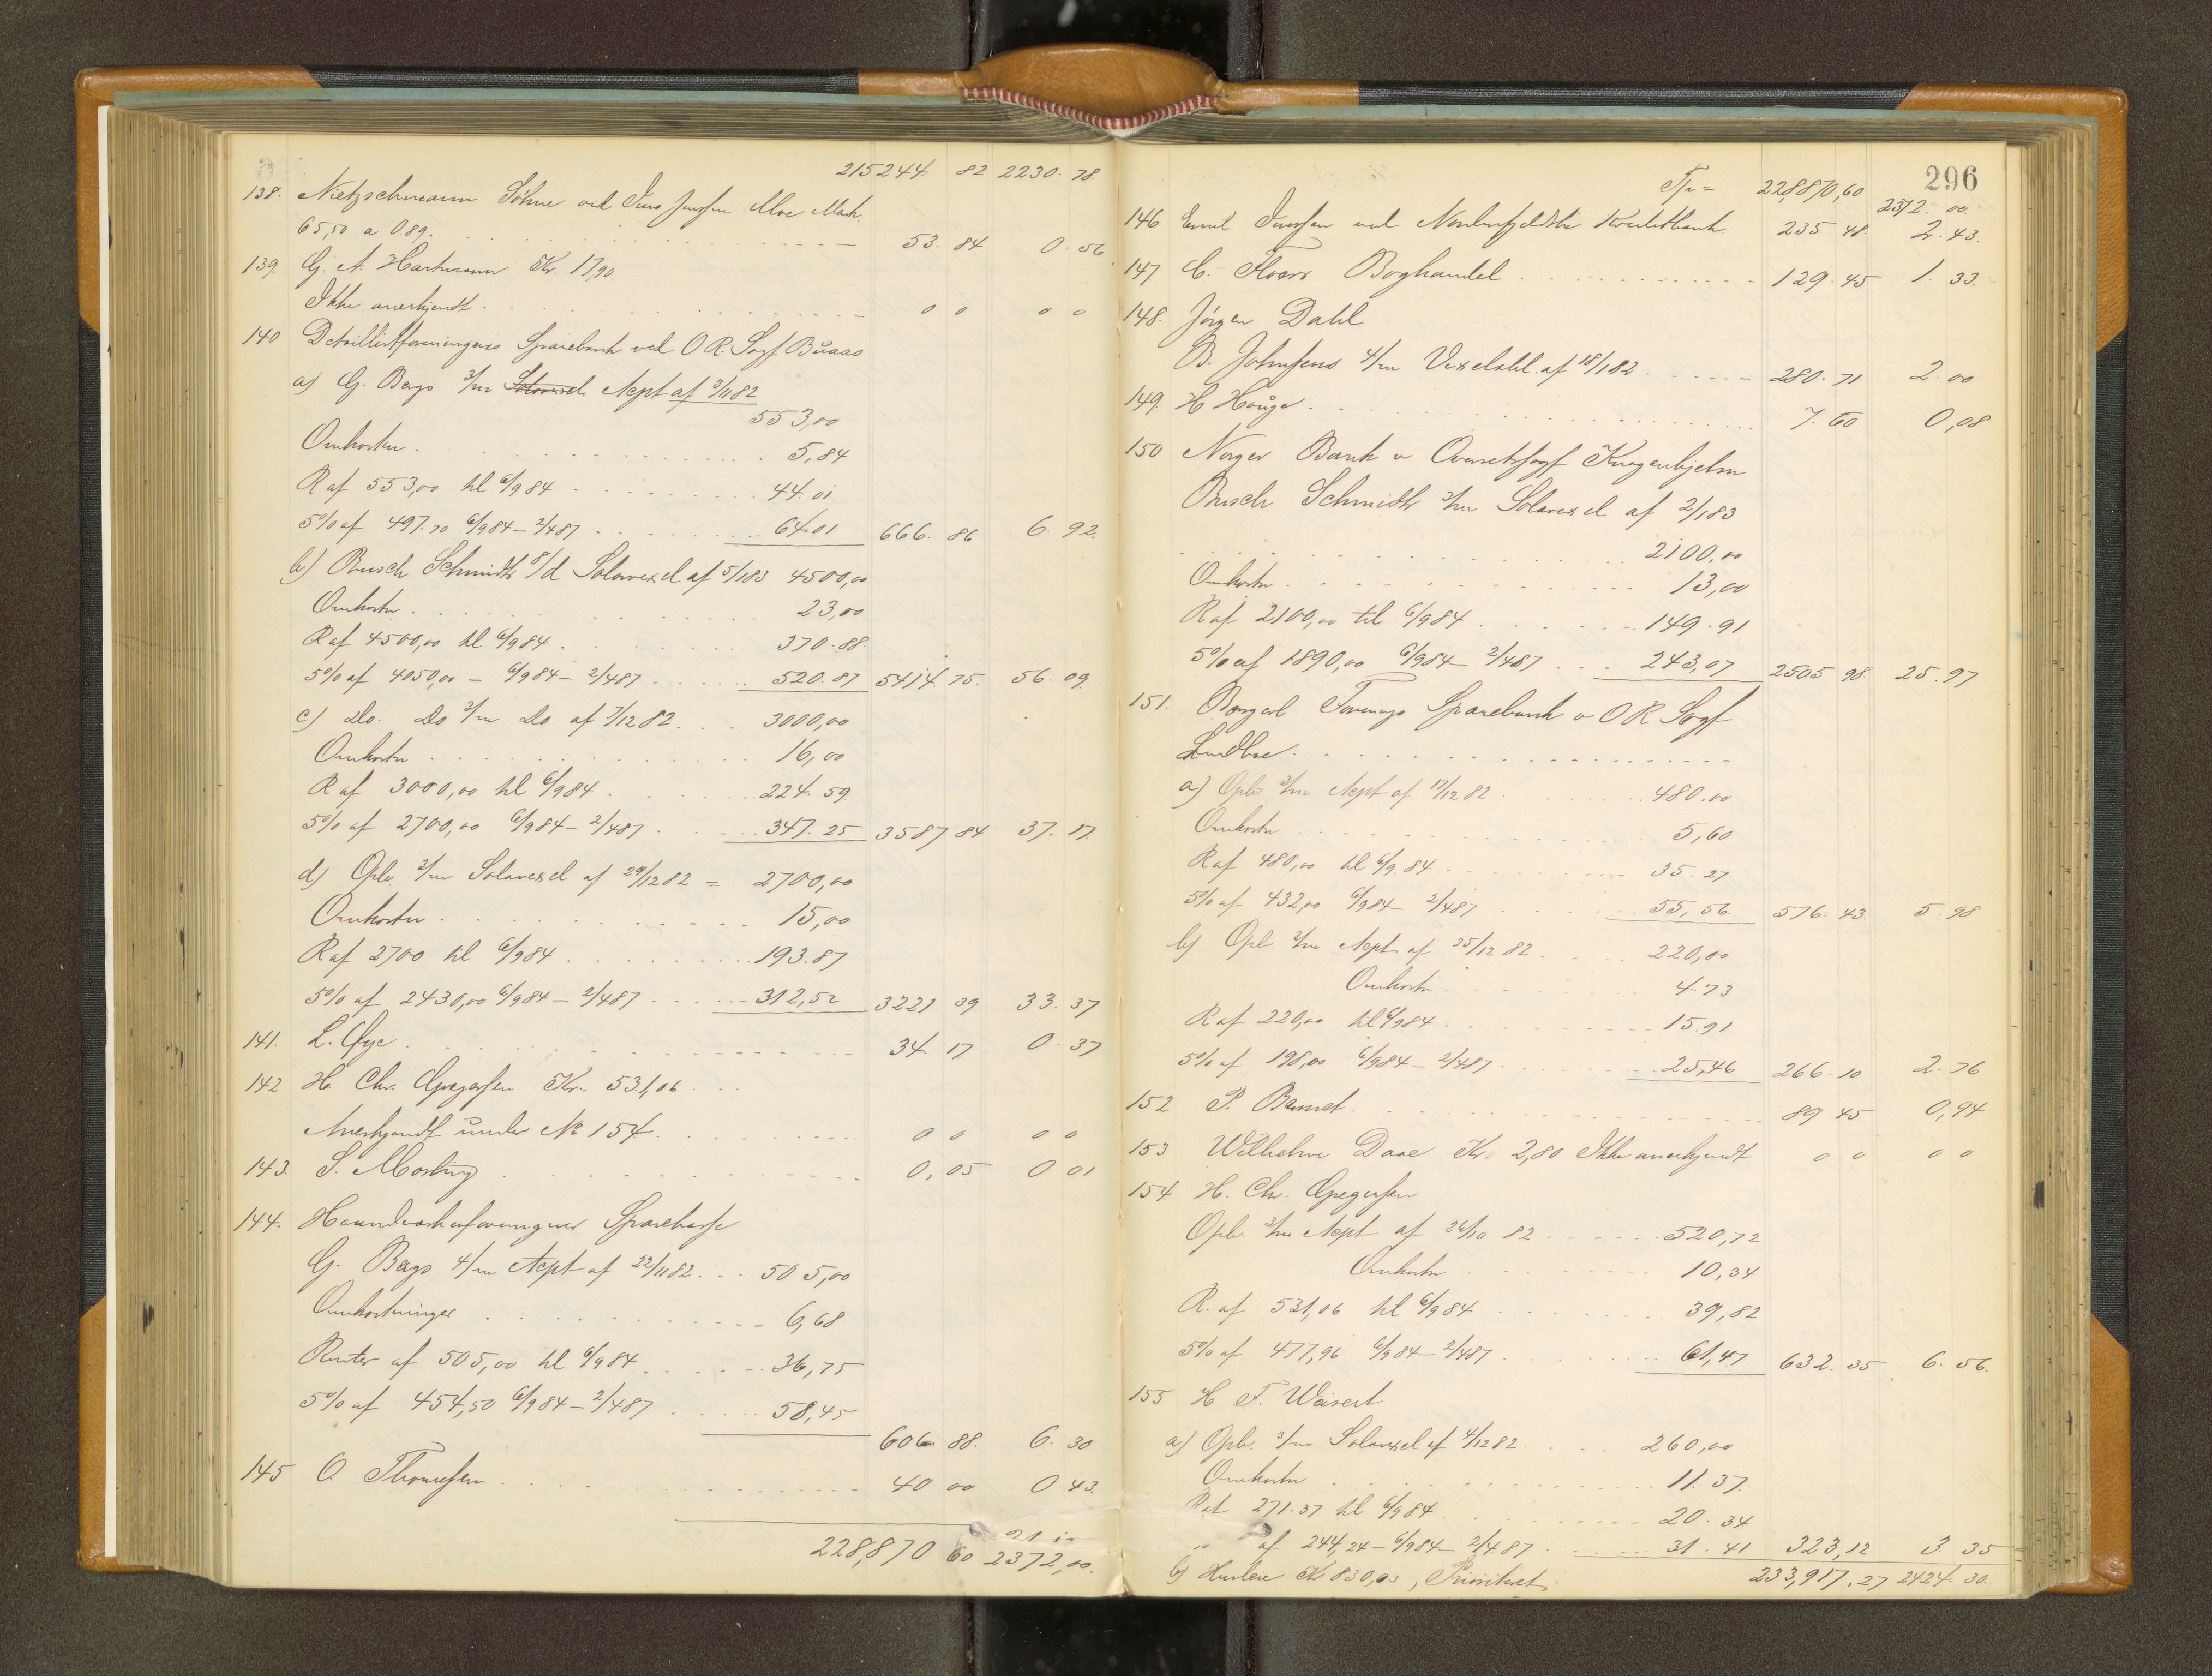 215244. 82 2230. 78.
138. Nietzschmann Söhne ved Jens Jensen Moe Mark
65,50 a 0.89. 53. 84 0. 56.
139. G. A. Hartmann Kr. 17,90
Ikke anerkjendt. 0 0 0 0
140 Detaillistforeningens Sparebank ved O R Sagf Buaas
a) G. Bergs 3/m Acpt af 3/11 82
553,00
Omkostn. 5,84
R af 553,00 til 6/9 84 44.01
5% af 497.70 6/9 84 – 2/4 87 64.01 666. 86 6. 92.
b) Busch Schmidts 8/d Solavexel af 5/1 83 4500,00
Omkostn. 23,00
R af 4500,00 til 6/9 84. 370.88
5% af 4050,00 – 6/9 84 – 2/4 87 520.87 5414. 75. 56. 09.
c) Do. Do 3/m Do af 7/12 82. 3000,00
Omkostn 16,00
R af 3000,00 til 6/9 84. 224.59.
5% af 2700,00 6/9 84 – 2/4 87. 347.25 3587 84 37. 17.
d) Oplr. 3/m Solavexel af 29/12 82 = 2700,00
Omkostn. 15,00
R af 2700 til 6/9 84. 193.87
5% af 2430,00 6/9 84 – 2/4 87. 312,52 3221 39 33. 37
141. L. Øye. 34 17 0. 37
142 H. Chr. Gregersen Kr. 531,06
Anerkjendt under No 154. 0 0 0 0
143. S. 0,05 0 01
144. Haandverkerforeningens Sparekasse
G. Bergs 4/m Acpt af 22/11 82. 505,00
Omkostninger 6,68
Renter af 505,00 til 6/9 84. 36,75
5% af 454,50 6/9 84 – 2/4 87 58,45
606. 88. 6. 30
145 O Thomesen. 40 00 0 43.
228,870 60 2372,00.
296
Tr = 228,870,60 2372. 00
146 Emil Iversen ved Nordenfjeldske Kreditbank 235 48. 2. 43.
147 C. Floors Boghandel 129. 45 1. 33.
148. Jörgen Dahl
B. Johnsens 4/m Vexelobl. af 18/1 82 280. 71 2. 00
149. H Hauge. 7. 60 0,08
150 Norges Bank v Overretssagf Krogenhjelm
Busch Schmidts 3/m Solavexel af 2/1 83
2100,00
Omkostn. 13,00
R af 2100,00 til 6/9 84. 149.91
5% af 1890,00 6/9 84 – 2/4 87 243,07 2505 98. 25. 97
151. Borgerl Forenings Sparebank v O R Sagf
Lindboe.
a) Oplr 3/m Acpt af 17/12 82 480.00
Omkostn 5,60
R af 480,00 til 6/9.84. 35.27
5% af 432,00 6/9 84 – 2/4 87 55,56. 576. 43. 5. 98
b) Oplr. 3/m Acpt af 25/12 82. 220,00
Omkostn. 4.73
R af 220,00 til 6/9 84. 15.91
5% af 198,00 6/9 84 – 2/4 87. 25,46 266. 10 2. 76
152 P. 89 45 0,94
153 Wilhelm Daae Kr. 2,80 Ikke anerkjendt 0 0 0 0
154. H. Chr. Gregersen
Oplr. 3/m Acpt af 26/10 82 520,72
Omkostn 10,34
R. af 531,06 til 6/9 84 39,82
5% af 477,96 6/9 84 – 2/4 87 61,47 632. 35 6. 56.
155 H F. Weisert
a) Oplr. 3/m Solavexel af 4/12 82. 260,00
Omkostn 11.37.
R af 271.37 til 6/9 84. 20.34
" af 244,24 – 6/9 84 – 2/4 87. 31.41 323,12 3. 35
b) Husleie Kr 830,03, Prioriteret. 233,917.27 2424. 30.